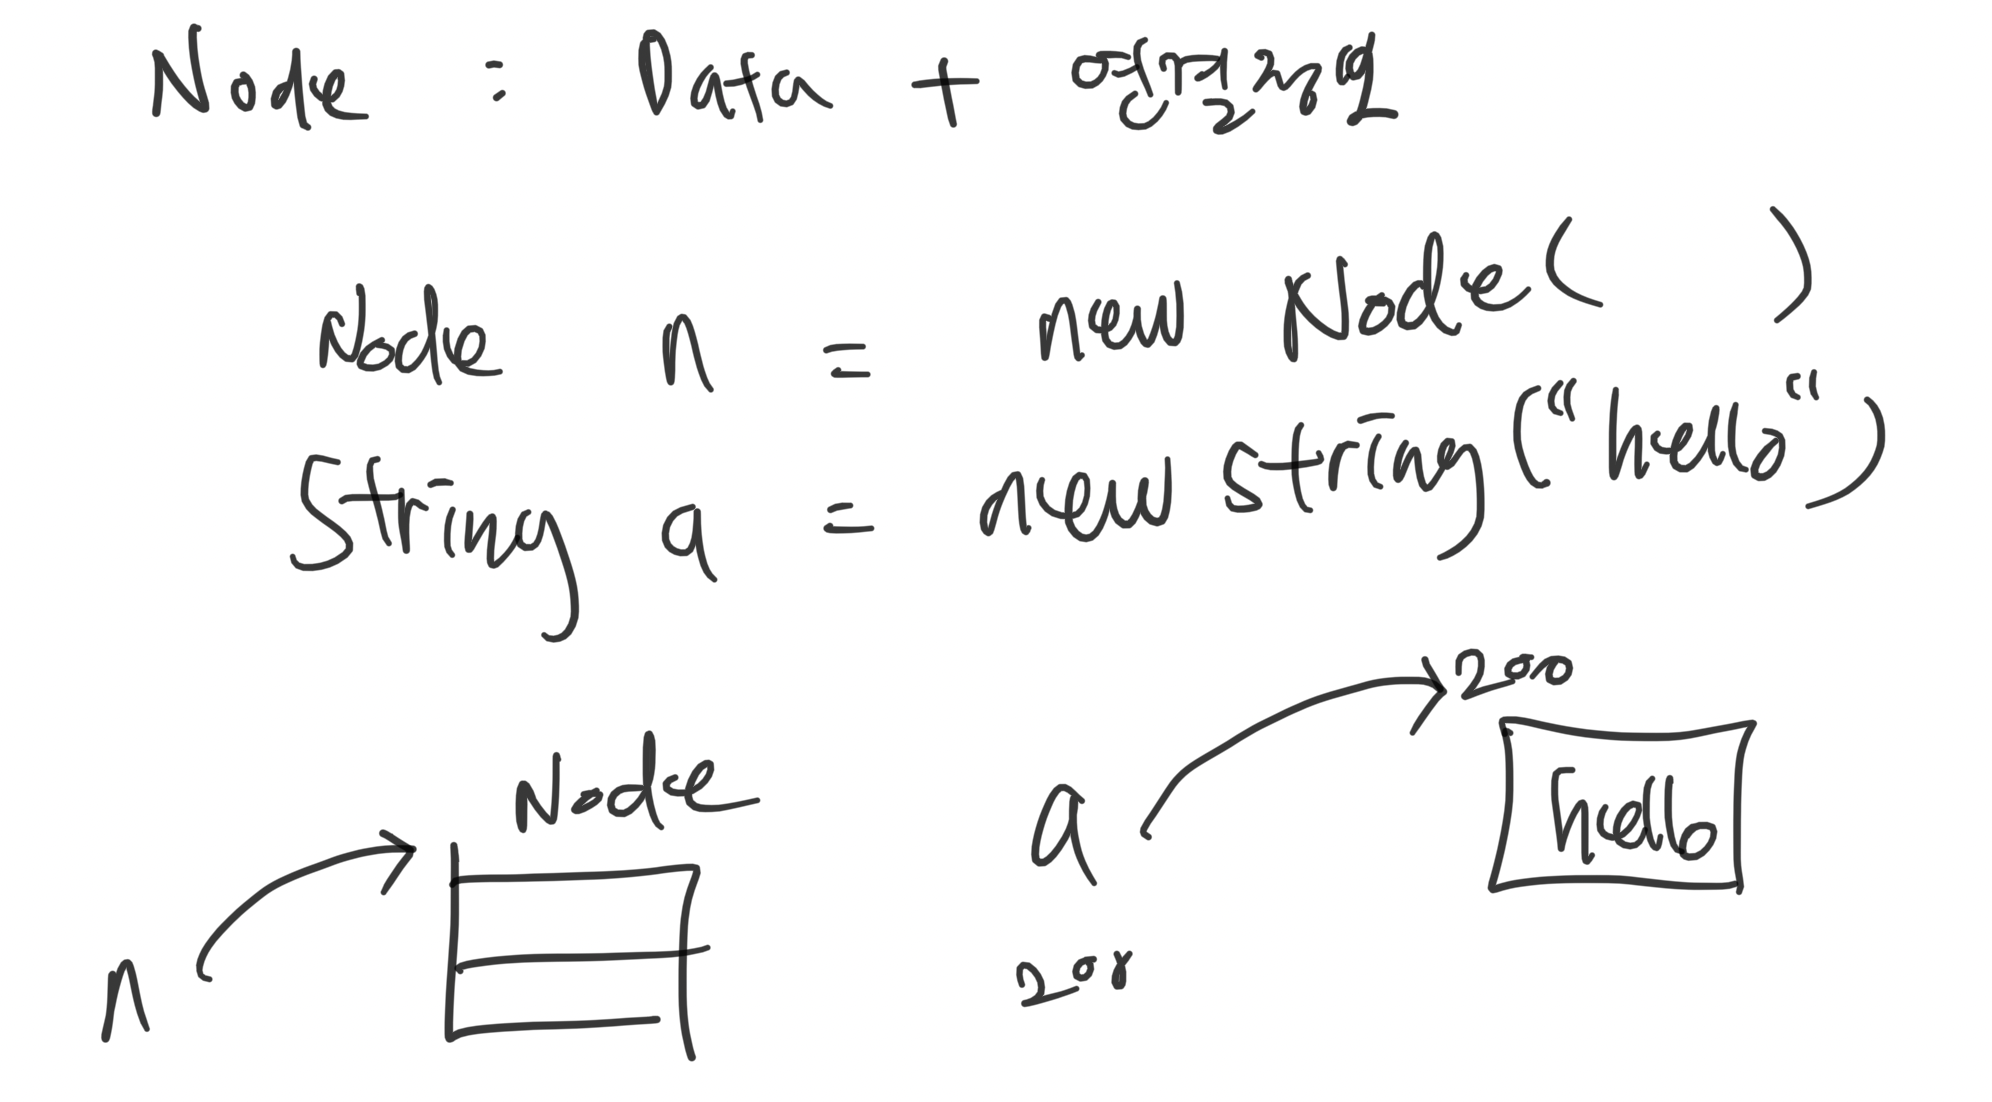 Node : Data + 연결정보
Node n = new Node( )
String a = new string("hello")
200
Node
hello
a
n
200